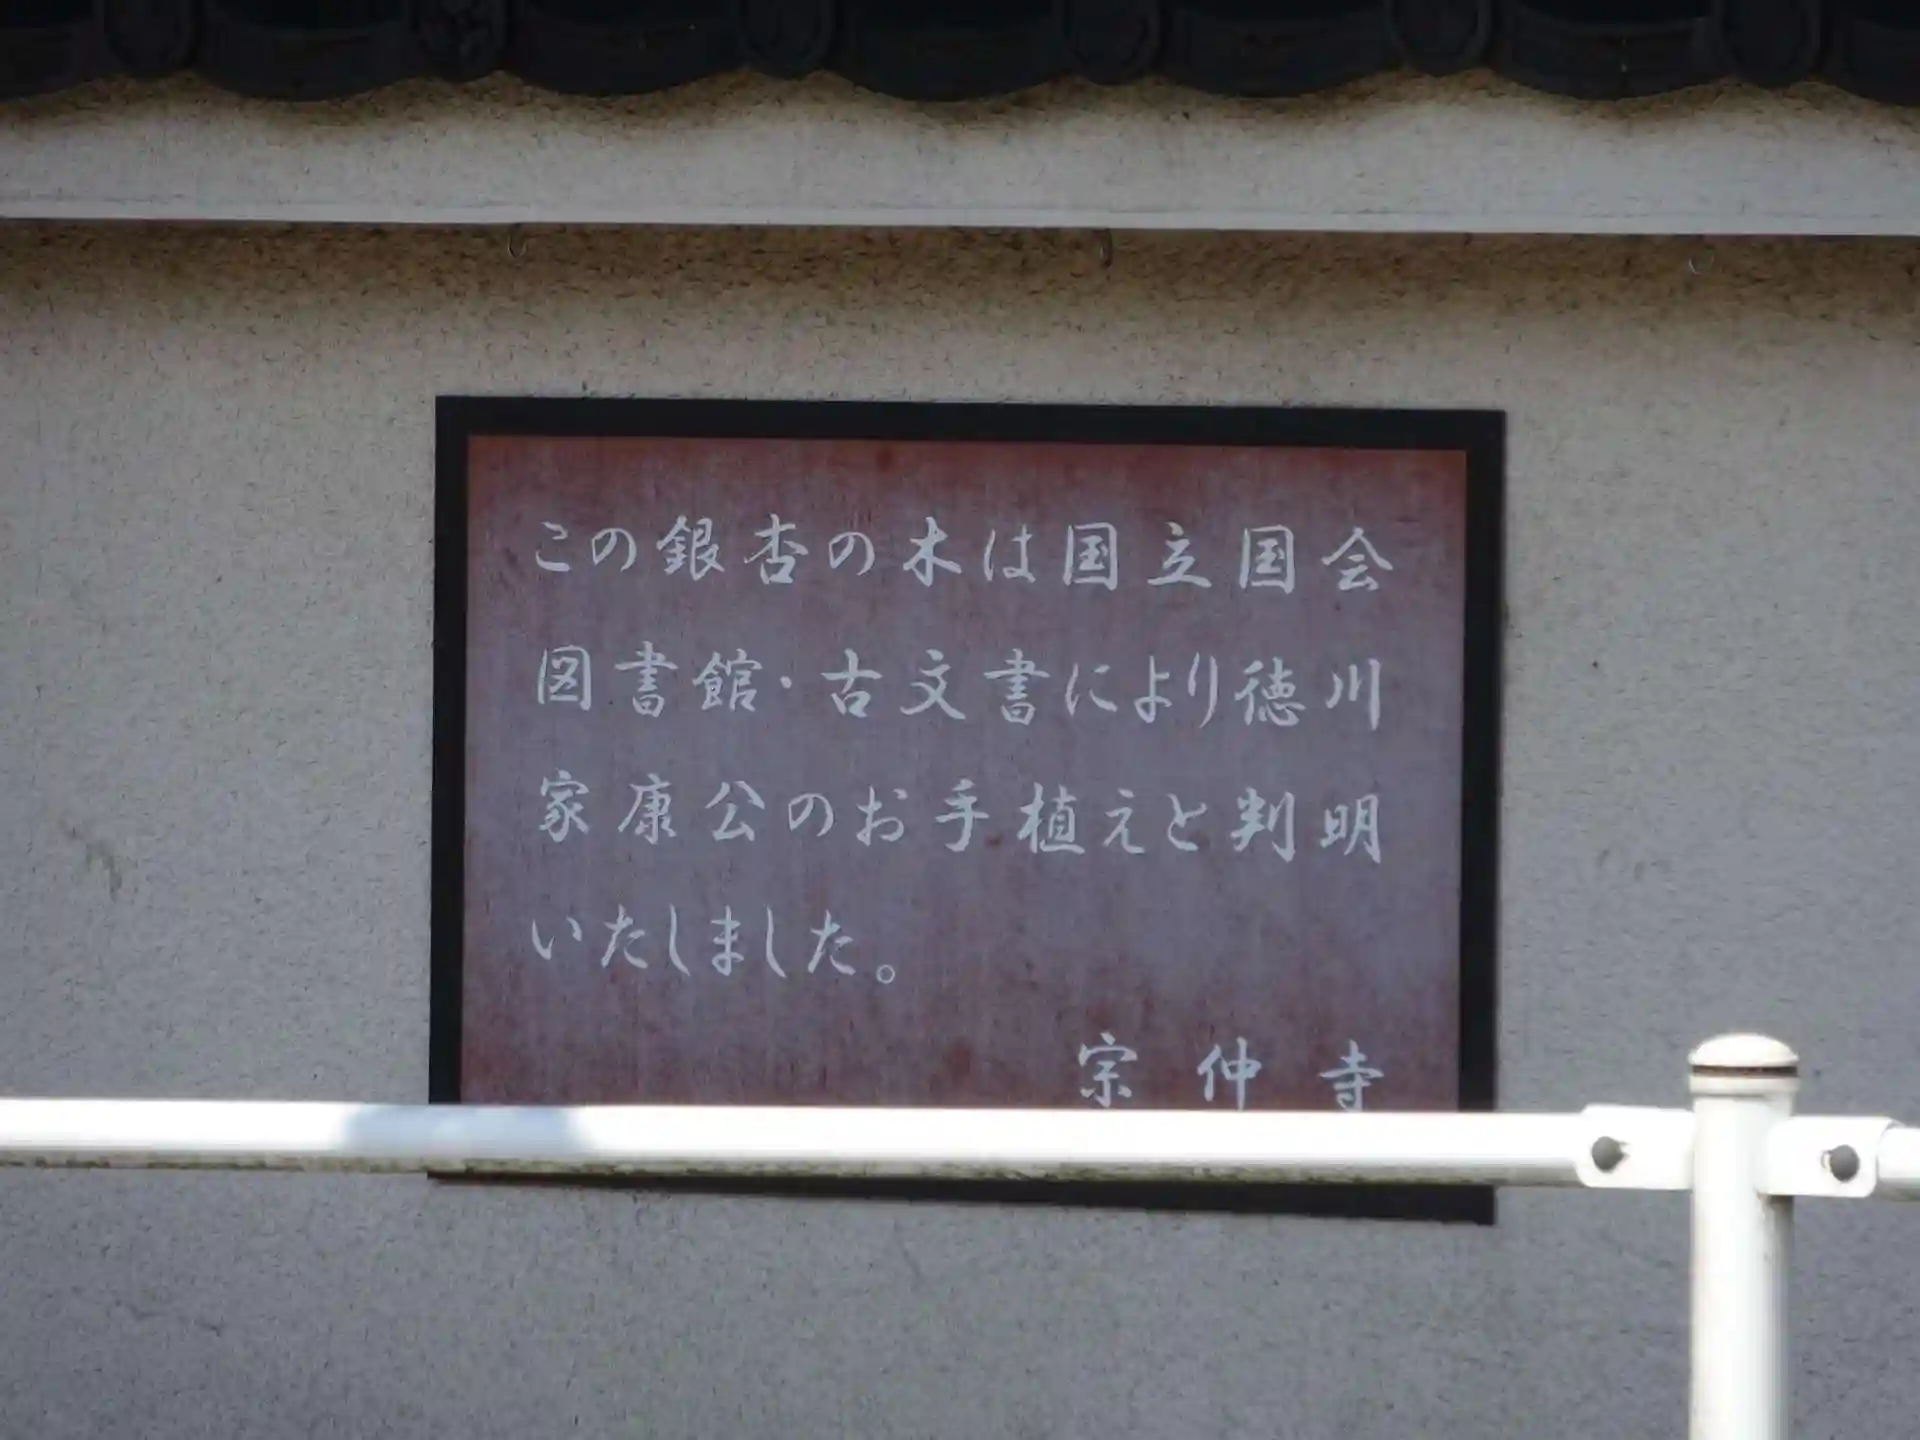 この銀杏の木は国立国会
図書館・古文書により徳川
家康公のお手植えと判明
いたしました。
宗仲寺